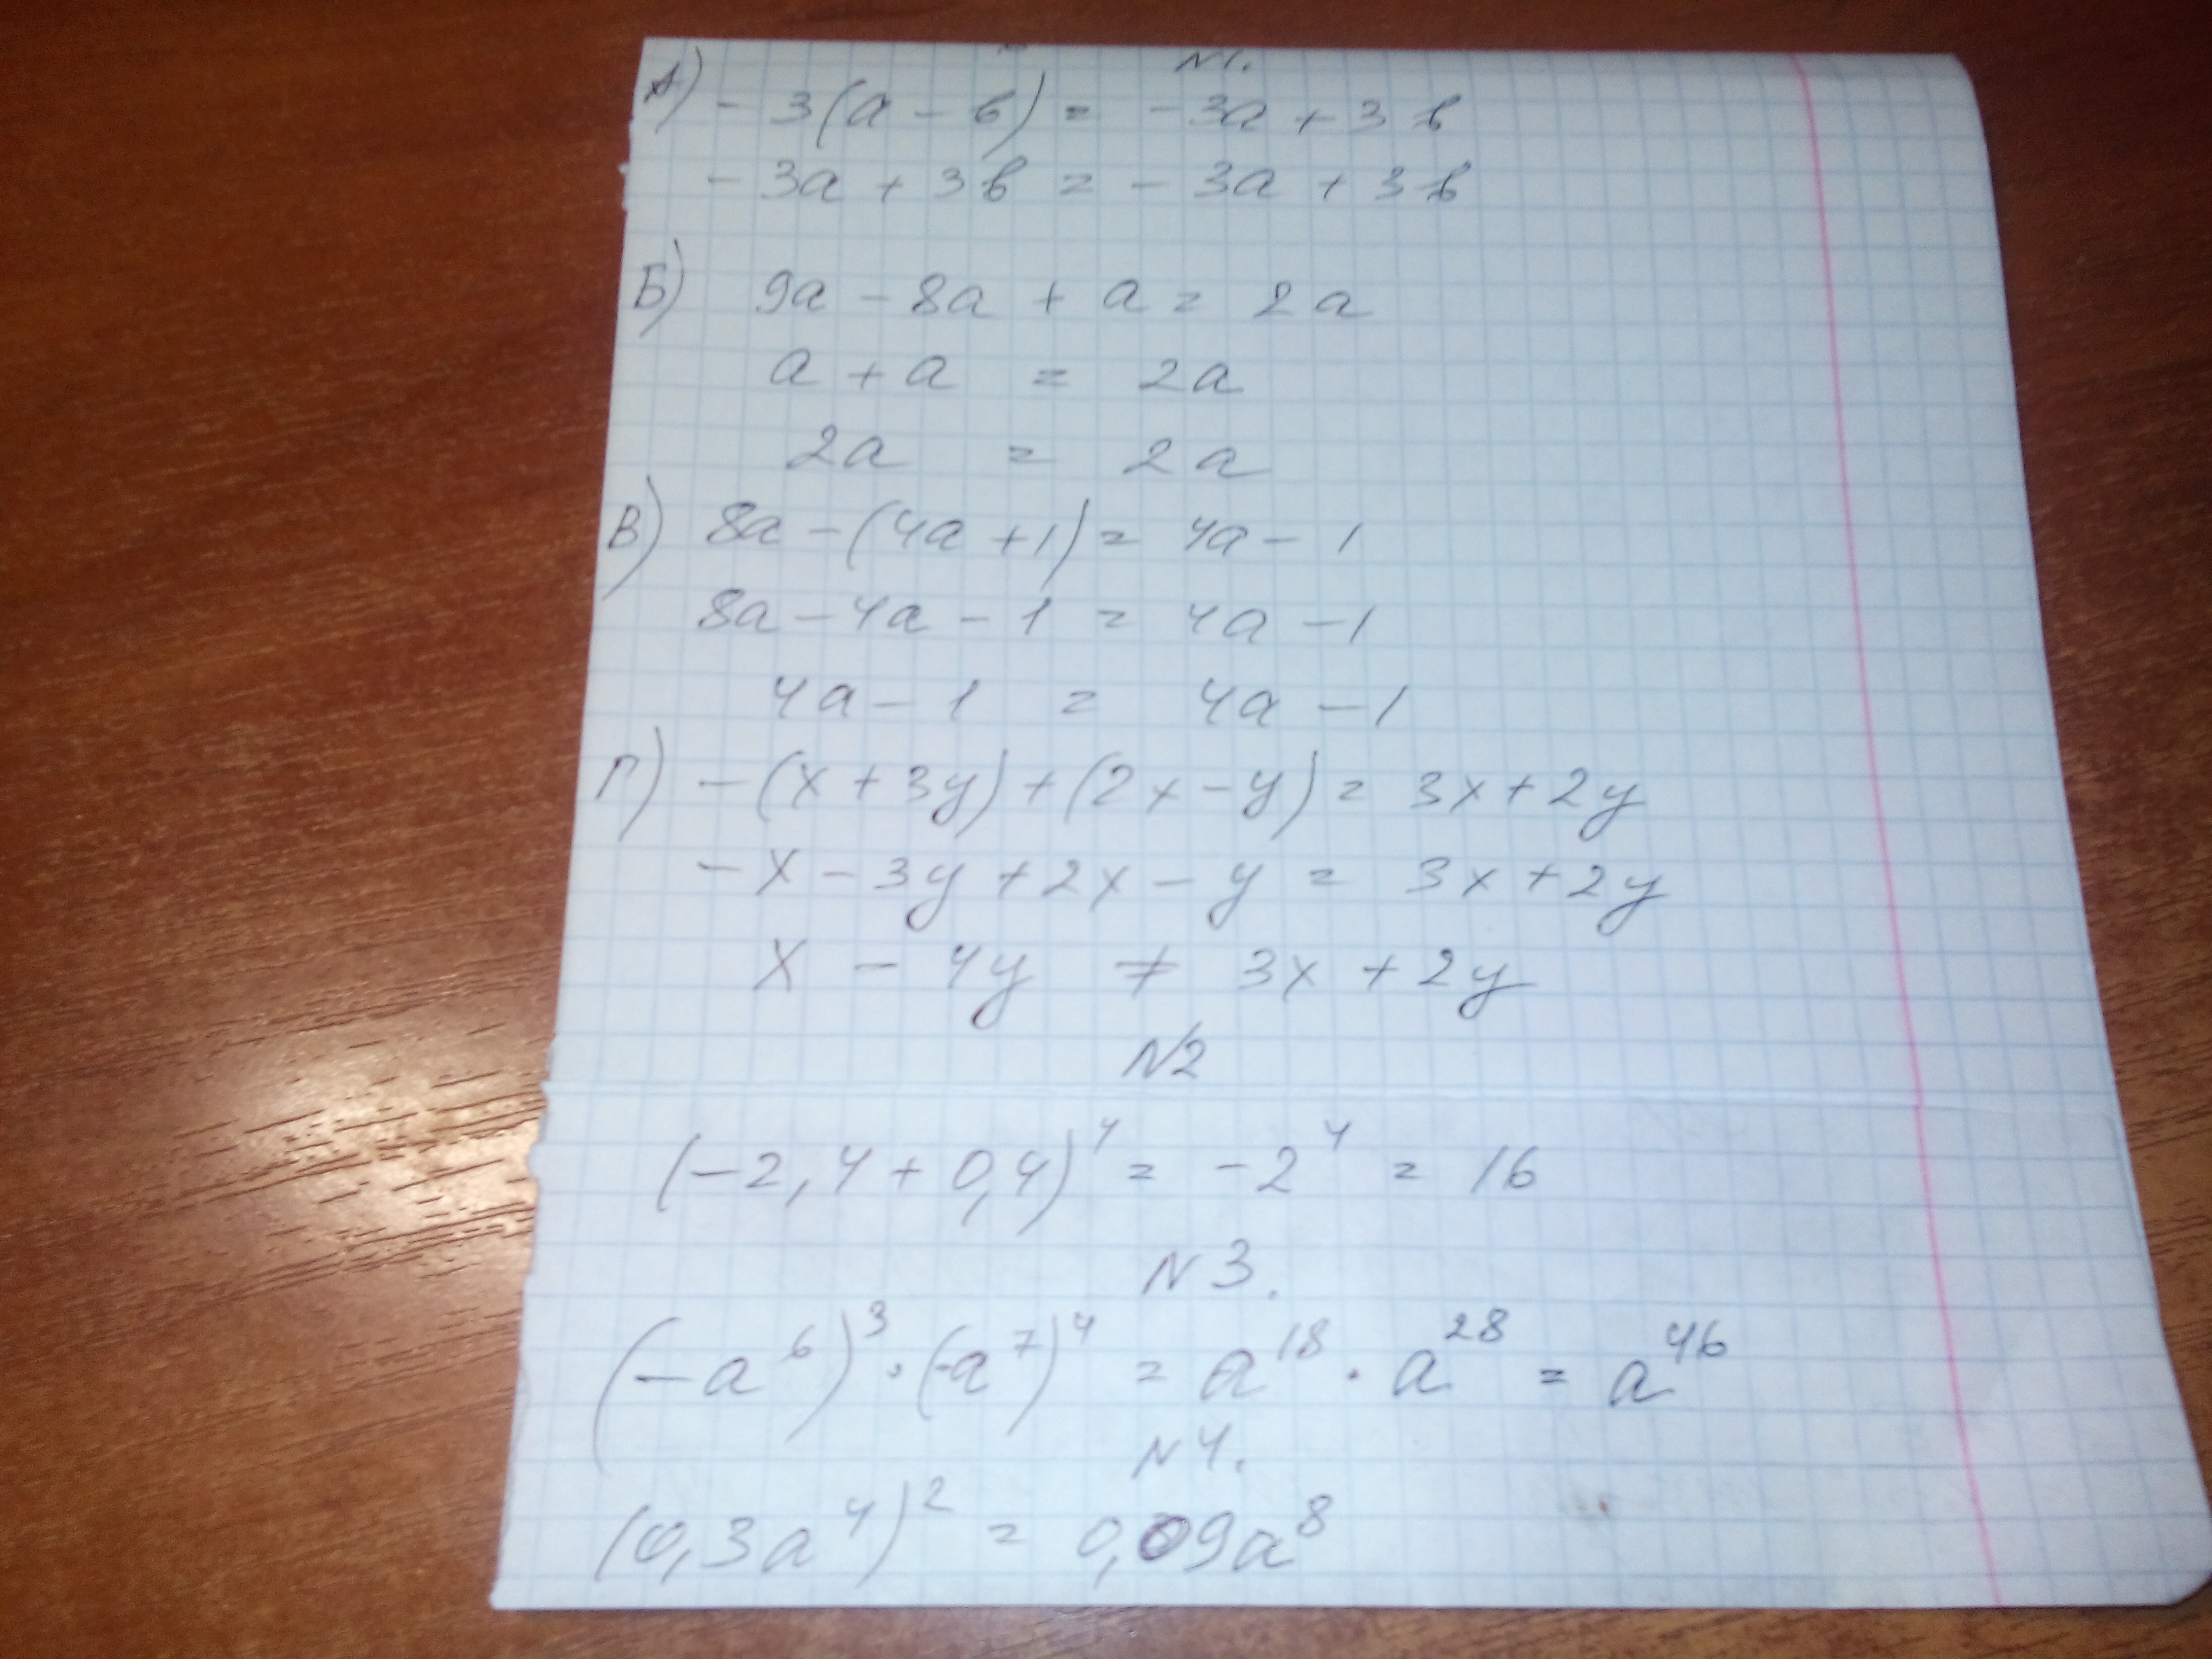 N1.
А) - 3(a - b) = - 3a + 3b
- 3a + 3b = - 3a + 3b
Б) 9a - 8a + a = 2a
a + a = 2a
2a = 2a
В) 8a - (4a + 1) = 4a - 1
8a - 4a - 1 = 4a - 1
4a - 1 = 4a - 1
Г) - (x + 3y) + (2x - y) = 3x + 2y
- x - 3y + 2x - y = 3x + 2y
x - 4y ≠ 3x + 2y
N2
(-2,4 + 0,4)⁴ = -2⁴ = 16
N3.
(-a⁶)³ · (-a⁷)⁴ = a¹⁸ · a²⁸ = a⁴⁶
N4.
(0,3a⁴)² = 0,09a⁸